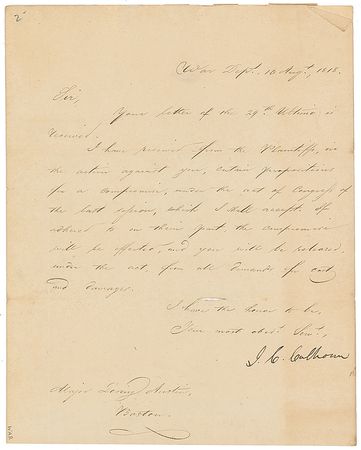 2
War Dept. 10 Augt. 1818.
Sir,
Your letter of the 29th. Ultimo is
received.
I have received from the Plaintiffs, in
the action against you, certain propositions
for a compromise, under the act of Congress of
the last session, which I shall accept. If
adhered to on their part the compromise
will be effected, and you will be released,
under the act, from all demands for cost
and damages.
I have the honor to be,
Your most obt. Servt.,
J. C. Calhoun
Major Austin,
Boston.